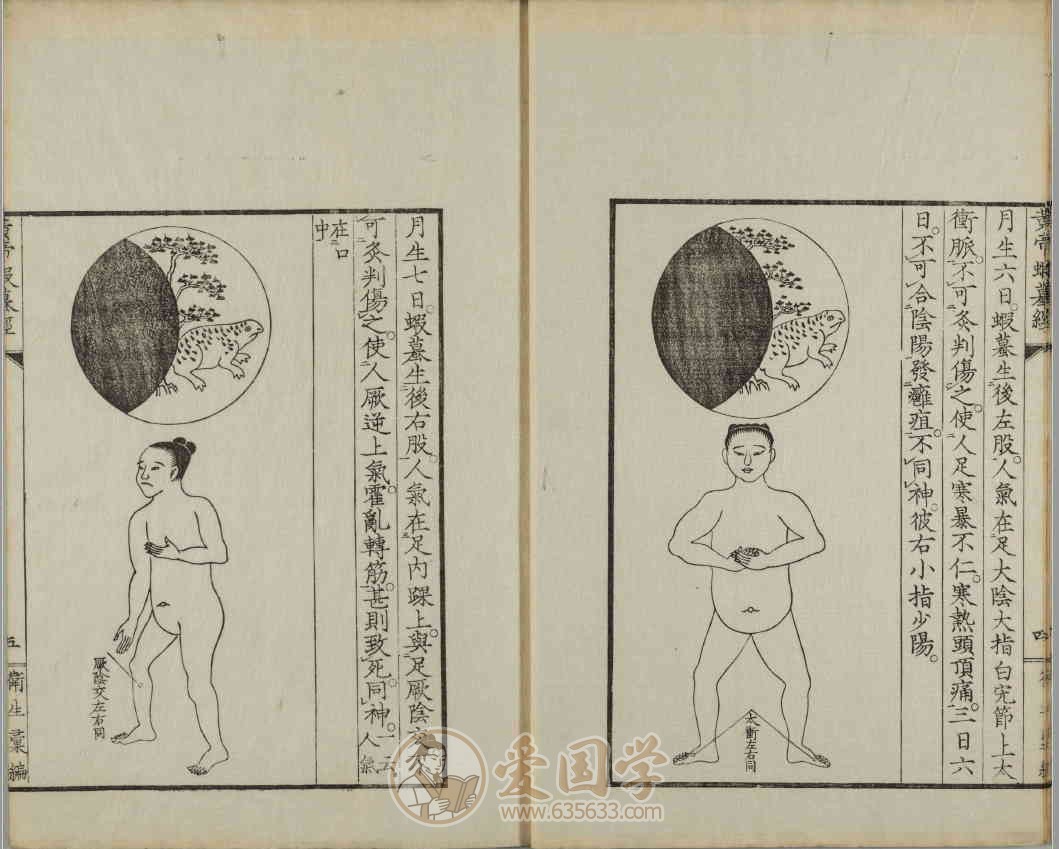 黃帝蝦蟇經
月生六日。蝦蟇生後左股。人氣在足大陰大指白完節上太
衝脈。不可灸判傷之。使人足寒暴不仁。寒熱頭頂痛。三日六
日。不可合陰陽。發癰疽。不同神。彼右小指少陽。
太衝左右同
四
月生七日。蝦蟇生後右股。人氣在足內踝上。與足厥陰交
可灸判傷之。使人厥逆上氣。霍亂轉筋。甚則致死。同神。一云人氣
在口中
厥陰交左右同
黃帝蝦蟇經
五
衛生彙編
爱国学
www.635633.com